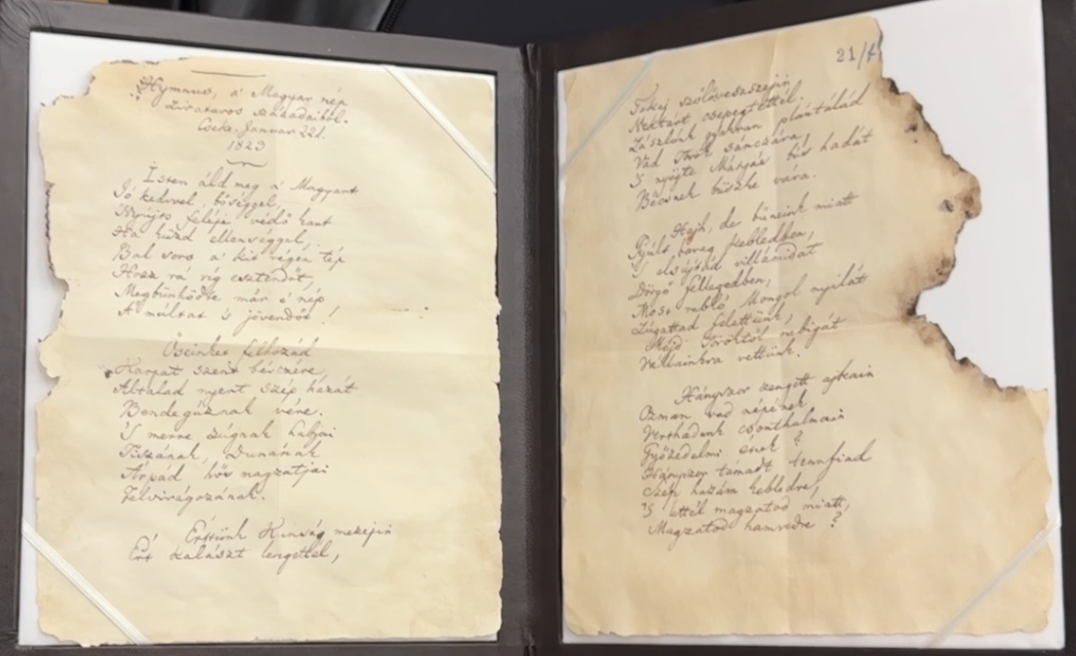 Hymnus, a' Magyar nép
zivataros századaiból.
Cseke. Január 22d.
1823
Isten áld meg a' Magyart
Jó kedvvel, bőséggel,
Nyújts feléje védő kart
Ha küzd ellenséggel,
Bal sors a' kit régen tép
Hozz rá víg esztendőt,
Megbűnhődte már e' nép
A' múltat 's jövendőt!
Őseinket felhozád
Kárpát szent bérczére,
Általad nyert szép hazát
Bendegúznak vére.
'S merre zúgnak habjai
Tiszának, Dunának
Árpád hős magzatjai
Felvirágozának.
Értünk Kunság mezején
Ért kalászt lengettél,
21/4
Tokaj szőlővesszején
Nektárt csepegtettél.
Zászlónk gyakran plántálád
Vad Török sánczára,
'S nyögte Mátyás bús hadát
Bécsnek büszke vára.
Hajh, de bűneink miatt
Gyúlt harag kebledben,
'S elsújtád villámidat
Dörgő fellegedben,
Most rabló Mongol nyilát
Zúgattad felettünk,
Majd Töröktől rabigát
Vállainkra vettünk.
Hányszor zengett ajkain
Ozman vad népének
Vert hadunk csonthalmain
Győzedelmi ének?
Hányszor támadt tennfiad
Szép hazám kebledre,
'S lettél magzatod miatt,
Magzatod hamvedre?